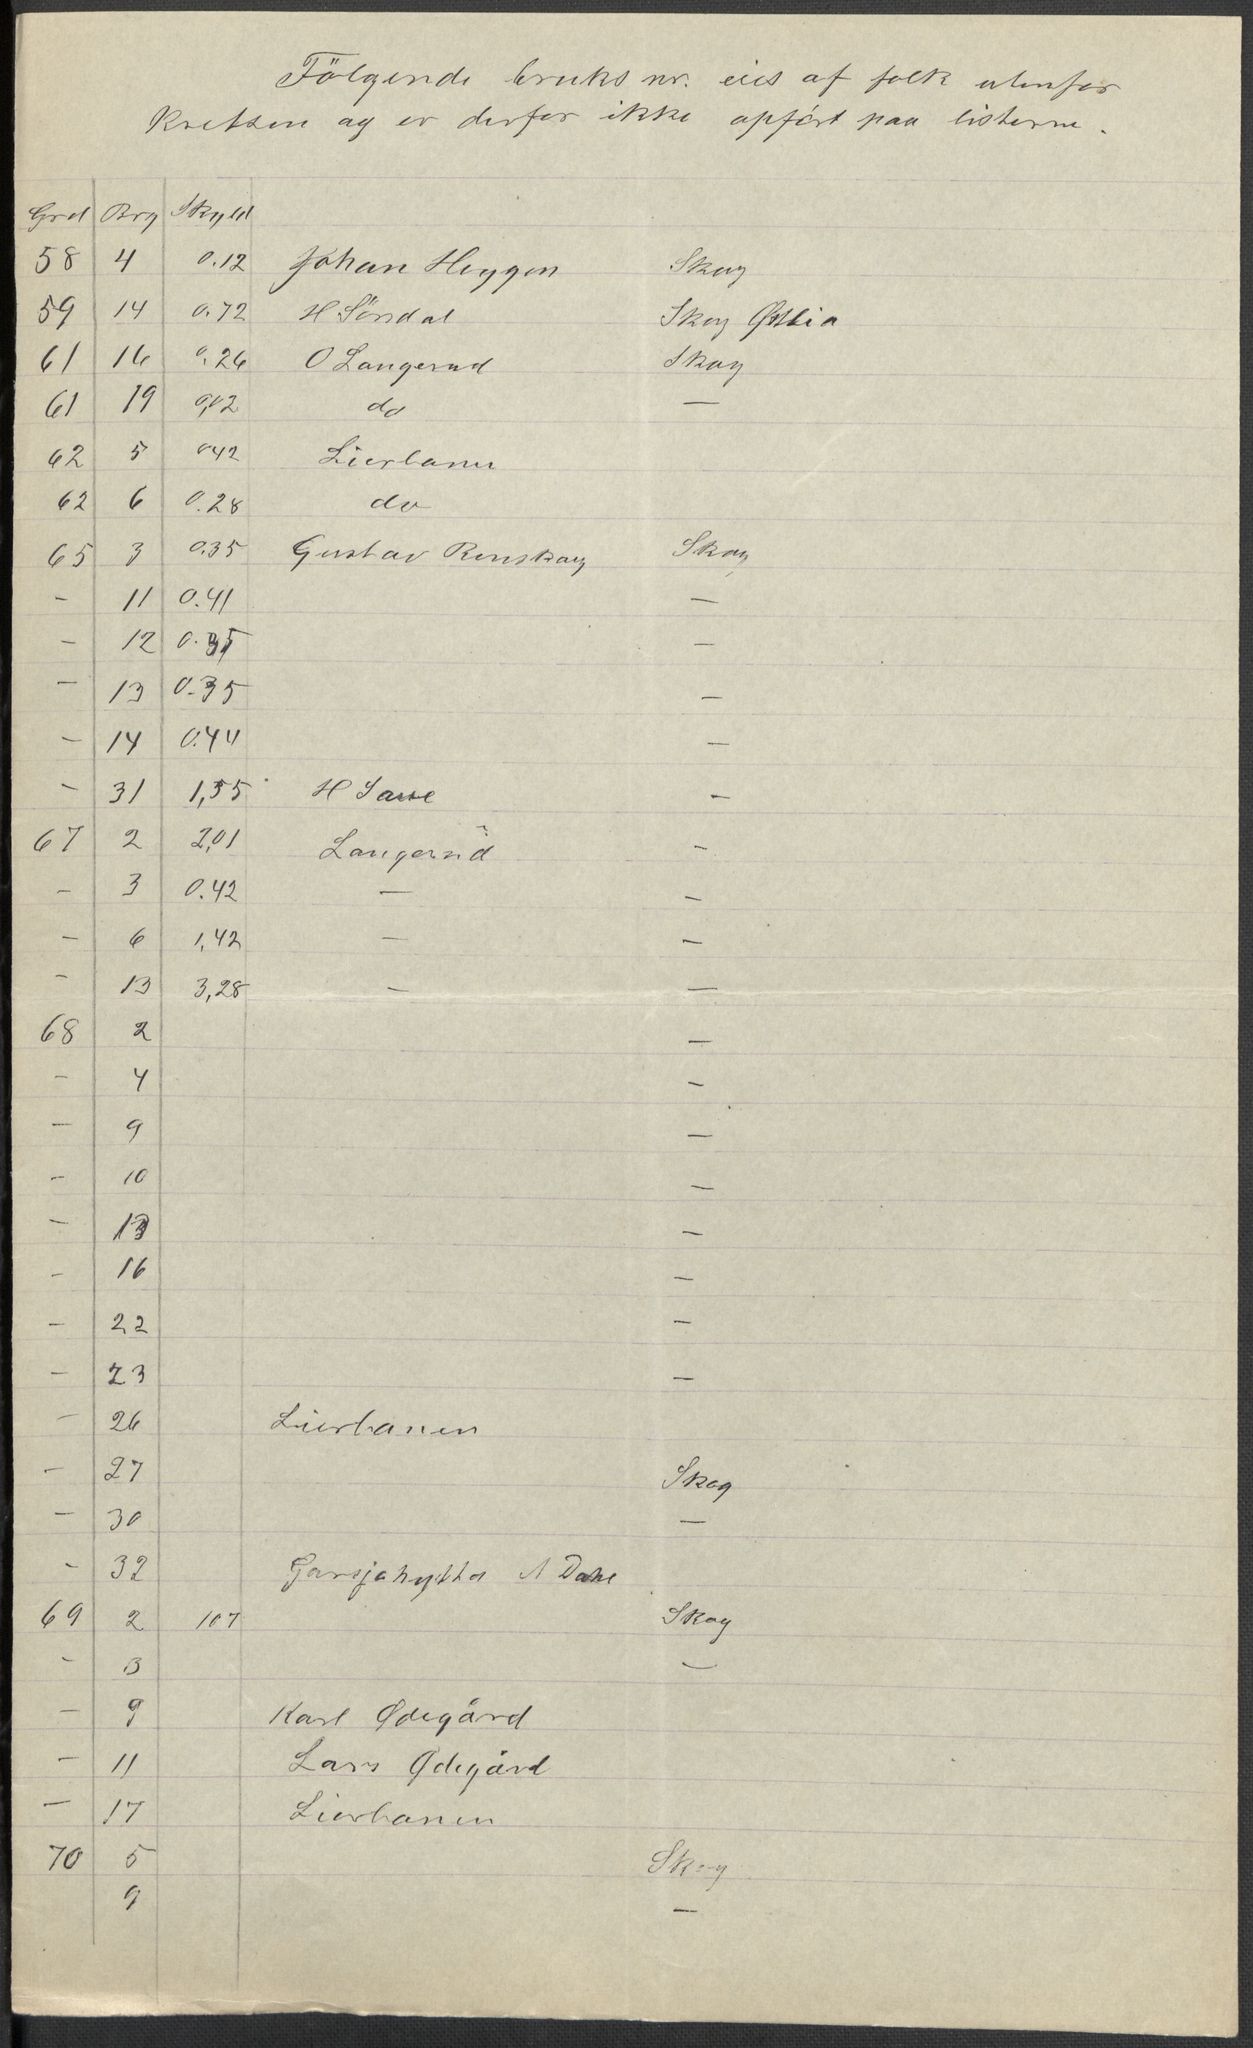 Fölgende bruks nr. eies af folk utenfor
Kretsen og er derfor ikke opført paa listerne.
Grd Brg Skyld
58 4 0.12 Johan Heggen Skog
59 14 0.72 H Sörsdal Skog Østlia
61 16 0.26 O Langerud Skog
61 19 0,02 do —
62 5 042 Lierbanen
62 6 0.28 do
65 3 0.35 Gustav Renskaug Skog
- 11 0.41 —
- 12 0.35 —
- 13 0.35 —
- 14 0.44 —
- 31 1,55 H -
67 2 2,01 Langerud -
- 3 0.42 — -
- 6 1,42 — -
- 13 3,28 — —
68 2 —
- 4 -
- 9 —
- 10 —
- 13 —
- 16 —
- 22 —
- 23 —
- 26 Lierbanen
- 27 Skog
- 30 —
- 32 Garsjøhytta A Dahl
69 2 107 Skog
- 3 —
- 9 Karl Ødegård
- 11 Lars Ødegård
- 17 Lierbanen
70 5 Skog
9 —